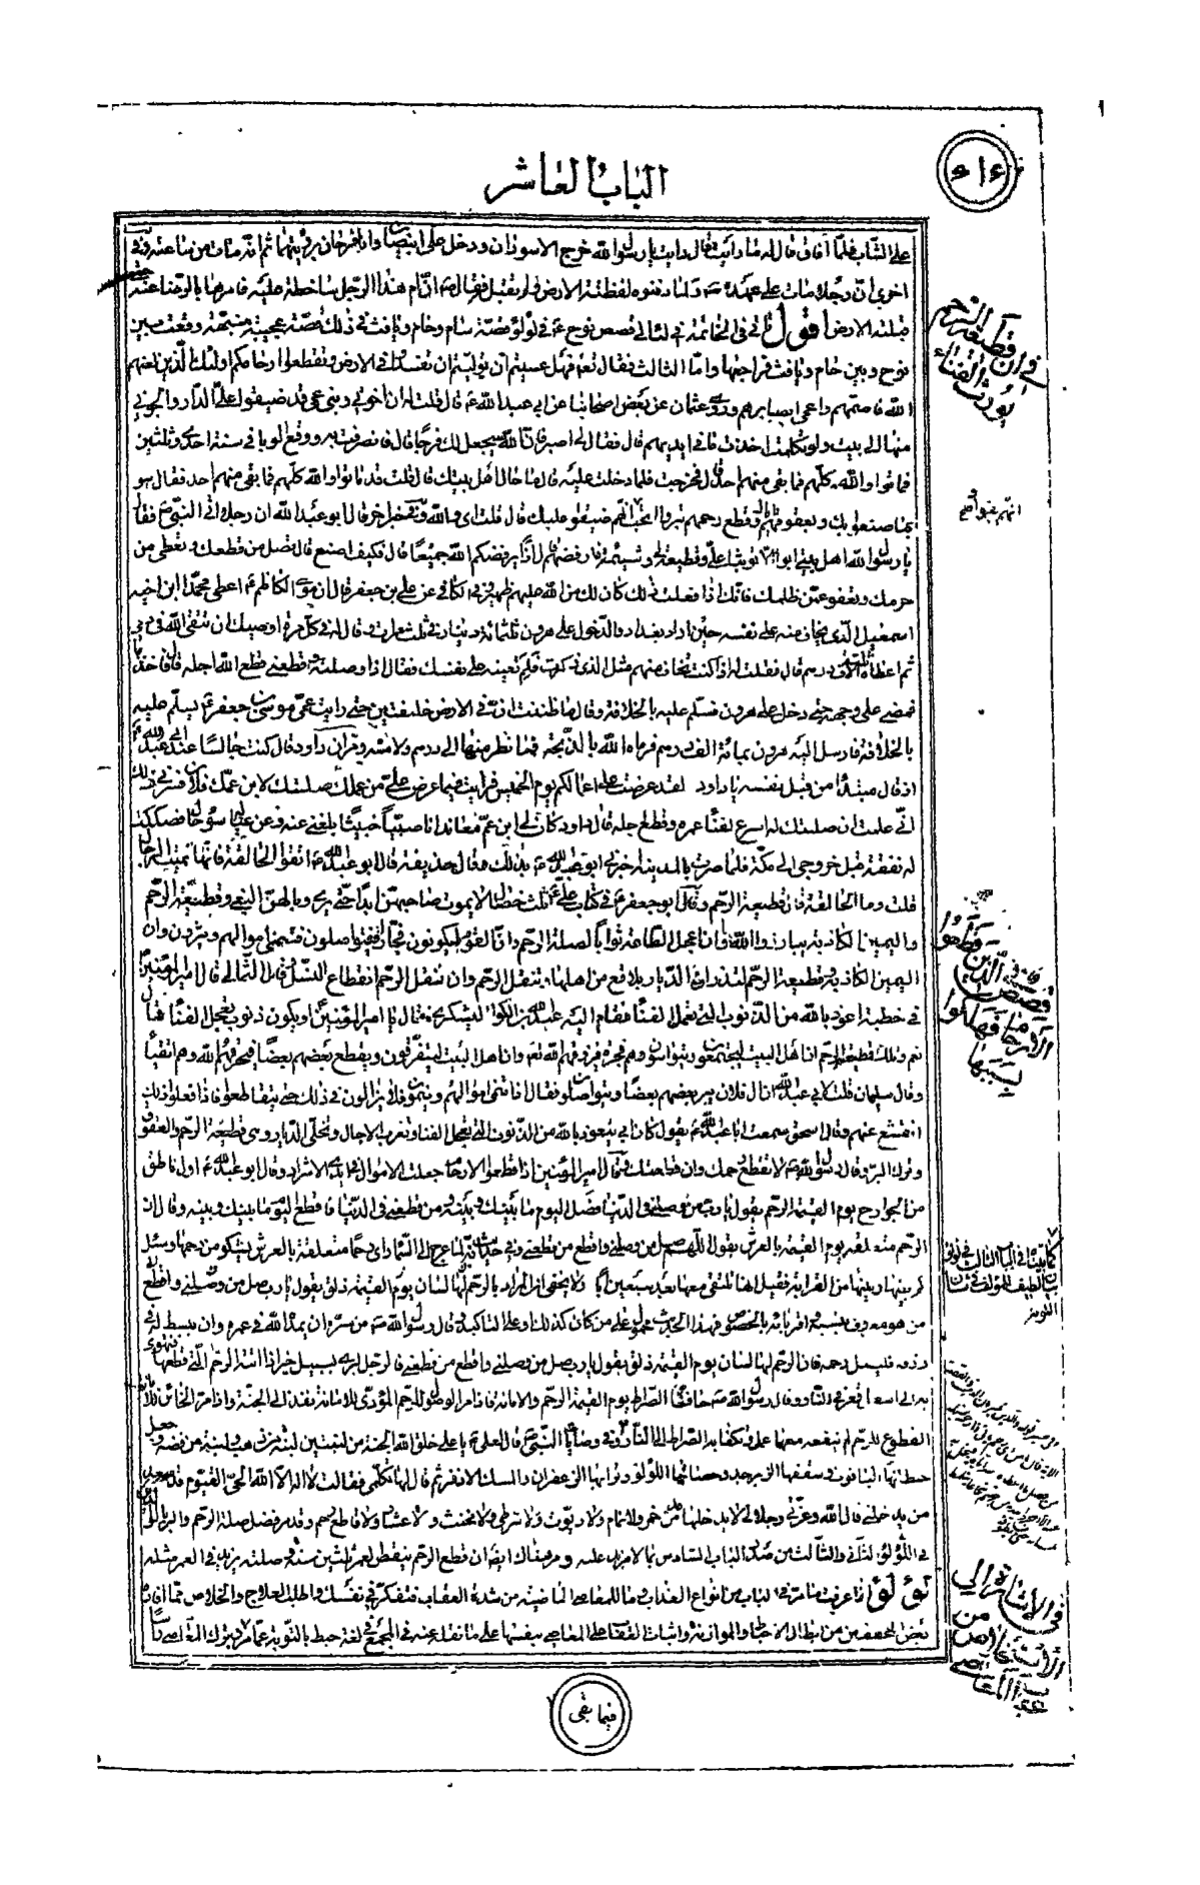 الباب العاشر
على الشاب فلما أفاق قال له ما رأيت قال رأيت يا رسول الله خرج الاسودان ودخل على ابيضان وانا فرحان برؤيتهما ثم انه مات من ساعته وفي
اخرى ان رجلا مات على عهده ص ولما دفنوه لفظته الارض فلم تقبله فقال ان ام هذا الرجل ساخطة عليه فامرها بالرضا عنه
قبلته الارض اقول يأتي في الخاتمة في لئالى قصص نوح ع في لؤلؤ قصة سام وحام ويافث في ذلك قصة عجيبة منبهة وقعت بين
نوح وبين حام ويافث فراجعها واما الثالث فقال تعالى فهل عسيتم ان توليتم ان تفسدوا في الارض وتقطعوا ارحامكم اولئك الذين لعنهم
الله فاصمهم واعمى ابصارهم وروى عثمان عن بعض اصحابنا عن ابى عبد الله ع قال قلت له ان اخوتى وبنى عمى قد ضيقوا على الدار والجؤنى
منها الى بيت ولو تكلمت اخذت ما في ايديهم قال فقال لى اصبر فان الله سيجعل لك فرجا قال فانصرفت ووقع الوبا في سنة احدى وثلثين
فماتوا والله كلهم فما بقى منهم احد قال فخرجت فلما دخلت عليه قال ما حال اهل بيتك قال قلت قد ماتوا والله كلهم فما بقى منهم احد فقال هو
بما صنعوا بك وبعقوقهم اياك وقطع رحمهم بتروا اتحب انهم بقوا وانهم ضيقوا عليك قال قلت اى والله وفي خبر اخر قال ابو عبد الله ان رجلا اتى النبى ص فقال
يا رسول الله اهل بيتى ابوا الا توثبا على وقطيعة لى وشتيمة فارفضهم قال اذا يرفضكم الله جميعا قال فكيف اصنع قال تصل من قطعك وتعطى من
حرمك وتعفو عمن ظلمك فانك اذا فعلت ذلك كان لك من الله عليهم ظهير وفي الكافى عن على بن جعفر قال ان موسى الكاظم ع اعطى محمد ابن اخيه
اسمعيل الذى يخاف منه على نفسه حين اراد بغداد والدخول على هرون ثلثمائة دينار في ثلث مرات وقال له في كل مرة اوصيك ان تتقى الله في دمى
ثم اعطاه ثلثة آلاف درهم قال فقلت له اذا كنت تخاف منهم مثل الذى ذكرت فلم تعينه على نفسك فقال اذا وصلته وقطعنى قطع الله اجله قال فاخذها
فمضى على وجهه حتى دخل على هرون فسلم عليه بالخلافة وقال ما ظننت ان في الارض خليفتين حتى رايت عمى موسى بن جعفر ع يسلم عليه
بالخلافة فارسل اليه هرون بمائة الف درهم فرماه الله بالذبحة فما نظر منها الى درهم ولا مسه وعن داود قال كنت جالسا عند ابى عبد الله ع
اذ قال مبتدءا من قبل نفسه يا داود لقد عرضت على اعمالكم يوم الخميس فرايت فيما عرض على من عملك صلتك لابن عمك فلان فسرنى ذلك
انى علمت ان صلتك له اسرع لفناء عمره وقطع اجله قال داود كان لى ابن عم معاندا ناصبيا خبيثا بلغنى عنه وعن عياله سوء حال فصككت
له نفقة قبل خروجى الى مكة فلما صرت بالمدينة اخبرنى ابو عبد الله ع بذلك وقال حذيفة قال ابو عبد الله ع اتقوا الحالقة فانها تميت الرجال
قلت وما الحالقة قال قطيعة الرحم وقال ابو جعفر ع في كتاب على ع ثلث خصال لا يموت صاحبهن ابدا حتى يرى وبالهن البغى وقطيعة الرحم
واليمين الكاذبة يبارز الله بها وان اعجل الطاعة ثوابا لصلة الرحم وان القوم ليكونون فجارا فيتواصلون فتنمى اموالهم ويثرون وان
اليمين الكاذبة وقطيعة الرحم لتذران الديار بلاقع من اهلها وتنقل الرحم وان نقل الرحم انقطاع النسل وقال الثمالى قال امير المؤمنين
في خطبة اعوذ بالله من الذنوب التى تعجل الفناء فقام اليه عبد الله بن الكوا اليشكرى فقال يا امير المؤمنين او يكون ذنوب تعجل الفناء قال
نعم ويلك قطيعة الرحم ان اهل البيت ليجتمعون ويتواسون وهم فجرة فيرزقهم الله تعالى وان اهل البيت ليتفرقون ويقطع بعضهم بعضا فيحرمهم الله وهم اتقياء
وقال سليمان قلت لابى عبد الله ان ال فلان يبر بعضهم بعضا ويتواصلون فقال اذا تنمى اموالهم وينمون فلا يزالون في ذلك حتى يتقاطعوا فاذا فعلوا ذلك
انقشع عنهم وقال اسحق سمعت ابا عبد الله ع يقول كان ابى يقول نعوذ بالله من الذنوب التى تعجل الفناء وتقرب الاجال وتخلى الديار وهى قطيعة الرحم والعقوق
وترك البر وقال رسول الله ص لا تقطع رحمك وان قطعتك وقال امير المؤمنين اذا قطعوا الارحام جعلت الاموال في ايدى الاشرار وقال ابو عبد الله ع اول ناطق
من الجوارح يوم القيمة الرحم يقول يا رب من وصلنى في الدنيا فصل اليوم ما بينك وبينه ومن قطعنى في الدنيا فاقطع اليوم ما بينك وبينه وقال ان
الرحم متعلقة يوم القيمة بالعرش يقول اللهم صل من وصلنى واقطع من قطعنى وفي حديث انه لما عرج الى السماء راى رحما متعلقة بالعرش يشكو من رحمها وسئل
كم بينها وبينها من القرابة فقيل لها نلتقى معها بعد سبعين ابا ولا يخفى ان المراد بالرحم
من هو معروف بنسبة اقربائه بالخصوص فهذا الحديث محمول على من كان كذلك او على التاكيد وقال رسول الله ص من سره ان يمد الله في عمره وان يبسط له في
رزقه فليصل رحمه فان الرحم لها لسان يوم القيمة ذلق يقول يا رب صل من وصلنى واقطع من قطعنى فالرجل ليرى بسبيل خير اذا اتته الرحم التى قطعها فتهوى
به الى اسفل قعر في النار وقال رسول الله ص حافتا الصراط يوم القيمة الرحم والامانة فاذا مر الوصول للرحم المؤدى للامانة نفذ الى الجنة واذا مر الخائن للامانة
القطوع للرحم لم ينفعه معهما عمل وتكفأ به الصراط الى النار وفي وصايا النبى ص قال لعلى ع يا على خلق الله الجنة من لبنتين لبنة من ذهب ولبنة من فضة وجعل
حيطانها الياقوت وسقفها الزبرجد وحصاها اللؤلؤ وترابها الزعفران والمسك الاذفر ثم قال لها تكلمى فقالت لا اله الا الله الحى القيوم قد سعد
من يدخلنى قال الله وعزتى وجلالى لا يدخلها مدمن خمر ولا نمام ولا ديوث ولا شرطى ولا مخنث ولا عشار ولا قاطع رحم وقد مر فضل صلة الرحم والبر بالوالدين
في اللؤلؤ الثانى والثالث من صدر الباب السادس بما لا مزيد عليه ومر هناك ايضا ان قطع الرحم ينقص العمر ثلثين سنة وصلته يزيد في العمر مثله
لؤلؤ اذا عرفت ما مر في الباب من انواع العذاب وما للمعاصى الماضية من شدة العقاب فتفكر في نفسك واطلب العلاج والخلاص مما افاده
بعض المحققين من ابطال الاحباط والموازنة واثبات العقاب على المعاصى بنفسها على ما نقله عنه في المجمع في لغة حبط بالتوبة عما مر وبترك المعاصى
فيما بقى
في ان قطيعة الرحم يورث الفناء
انهم بقوا
في قصص الذين قطعوا الارحام فهلكوا بسببها
كما بيناه في الباب الثالث في لؤلؤ
في الاشارة الى